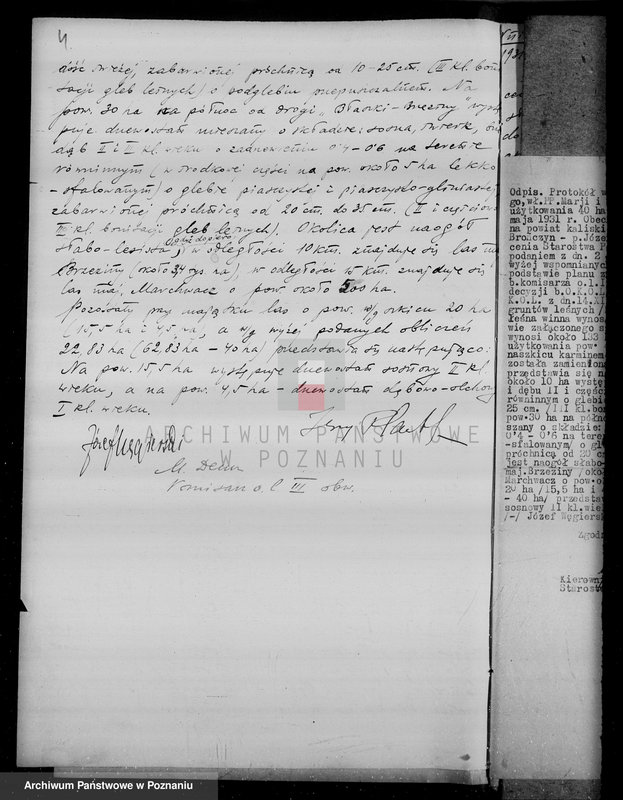 4.
dość świeżej, zabarwionej próchnicą od 10-25 cm. (III kl. boni
tacji gleb leśnych) o podglebiu nieprzepuszczalnem. Na
pow. 30 ha na północ od drogi „Błaski-Brzeziny" wystę
puje drzewostan mieszany o składzie: sosna, świerk,
dąb II i III kl. wieku o zadrzewieniu 0'4-0'6 na terenie
równinnym (w środkowej części na pow. około 5 ha lekko
-sfalowanym) o glebie piaszczystej i piaszczysto-gliniastej
zabarwionej próchnicą od 20 cm. do 35 cm. (II i częściowo
III kl. bonitacji gleb leśnych). Okolica jest naogół
słabo-lesista, w odległości 10 km. znajduje się las maj.
Brzeziny (około 34 tys ha), w odległości w km. znajduje się
las maj. Marchwacz o pow. około 500 ha.
Pozostały przy majątku las o pow. w/g szkicu 20 ha
(15,5 ha i 4,5 ha, a w/g wyżej podanych obliczeń
22,83 ha (62,83 ha - 40 ha) przedstawia się następująco:
Na pow. 15,5 ha występuje drzewostan sosnowy II kl
wieku, a na pow. 4,5 ha - drzewostan dębowo-olchowy
I kl. wieku.
Józef Węgierski
Komisarz o. l. III obw.
ARCHIWUM PAŃSTWOWE
W POZNANIU
Odpis. Protokół w
go, wł. PP. Marji i
użytkowania 40 ha
maja 1931 r. Obec
na powiat kaliski
Brończyn - p. Józe
cenia Starostwa P
podaniem z dn. 2
wyżej wspomnianych
podstawie planu z
b. komisarza o. l. I
decyzji b. O.K.O.L
K.O.L. z dn. 14.XI
gruntów leśnych /
leśna winna wynos
wie załączonego s
wynosi około 133
użytkowania pow.
naszkicu karminem
została zamieniona
przedstawia się na
około 10 ha wystę
i dębu II i części
równinnym o glebie
25 cm. /III kl. bon
pow. 30 ha na półno
szany o składzie:
0'4 - 0'6 na tere
-sfalowanym/ o gl
próchnicą od 20 c
jest naogół słabo
maj. Brzeziny /oko
Marchwacz o pow. o
20 ha /15,5 ha i 4
- 40 ha/ przedstaw
sosnowy II kl. wie
/-/ Józef Węgiersk
Zgodn
Kierowni
Starostw
Archiwum Państwowe w Poznaniu